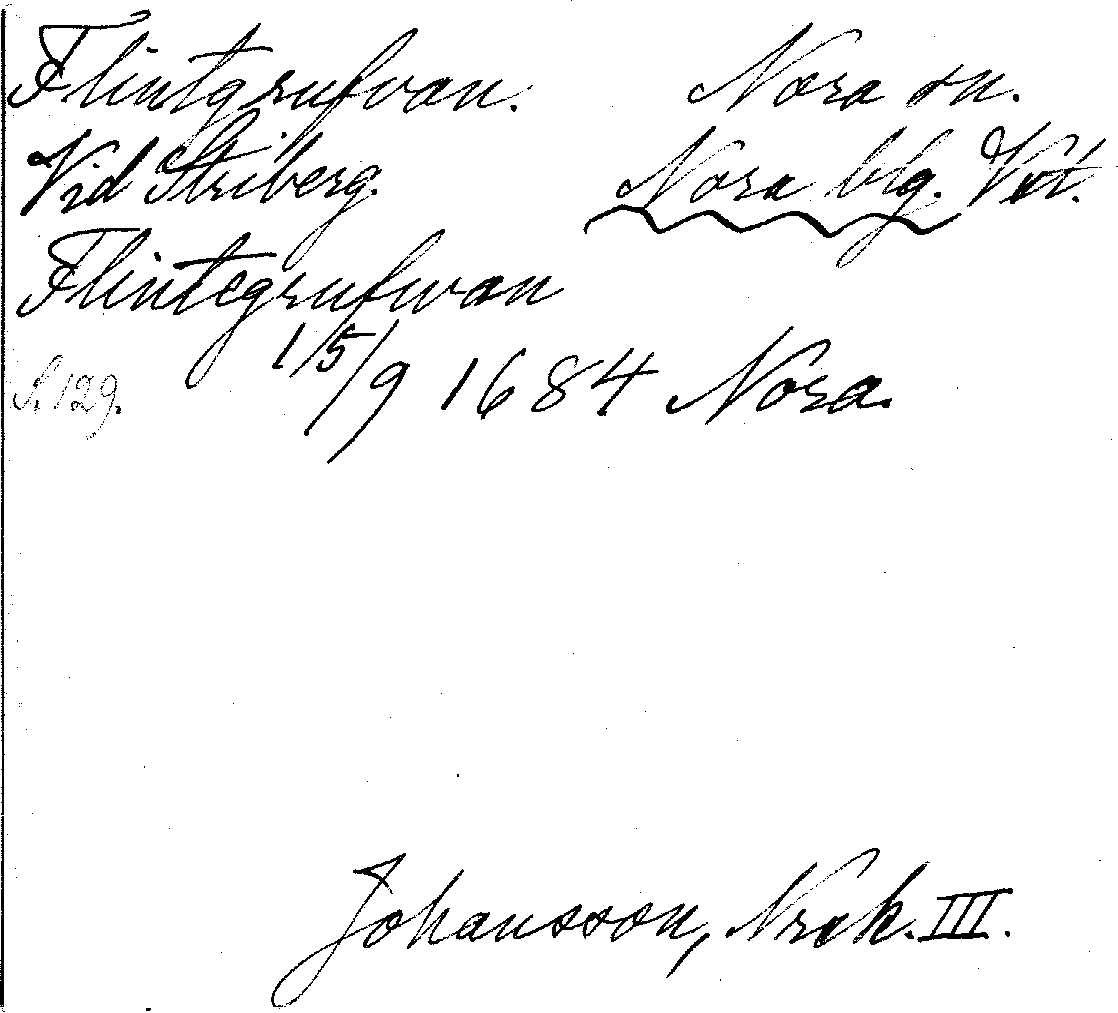 Flintgrufvan. Nora sn.
Vid Striberg. Nora blg. Vst.
Flintegrufwan
15/9 1684 Nora.
S. 129.
Johansson, Nrck. III.